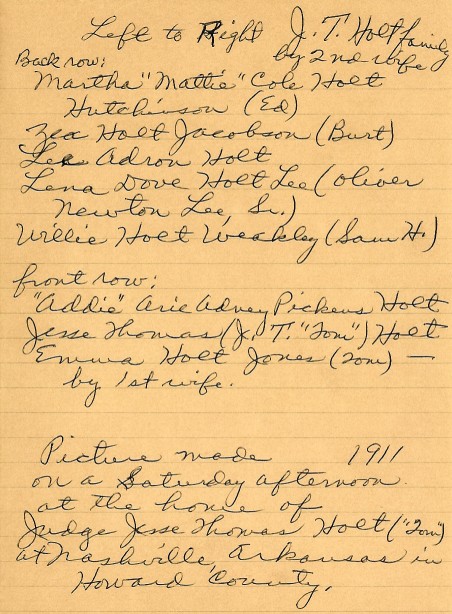 Left to Right J. T. Holt family
by 2nd wife
Back row:
Martha "Mattie" Cole Holt
Hutchinson (Ed)
Zea Holt Jacobson (Burt)
Lee Adron Holt
Lena Dove Holt Lee (Oliver
Newton Lee, Sr.)
Willie Holt Weakley (Sam H.)
front row:
"Addie" Arie Adney Pickens Holt
Jesse Thomas (J. T. "Tom") Holt
Emma Holt Jones (Tom) —
by 1st wife.
Picture made 1911
on a Saturday afternoon
at the home of
Judge Jesse Thomas Holt ("Tom")
at Nashville, Arkansas in
Howard County.